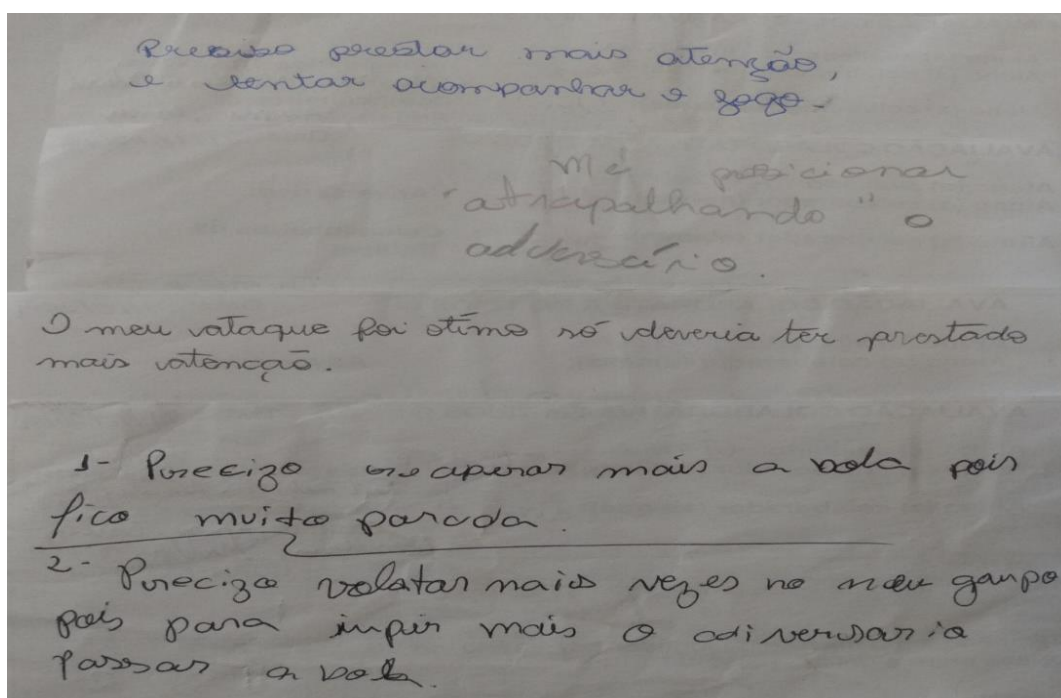 Preciso prestar mais atenção,
e tentar acompanhar o jogo.
Me posicionar
"atrapalhando" o
adversário.
O meu ataque foi otímo só deveria ter prestado
mais atencaõ.
1- Precizo recaperar mais a bola pois
fico muito parada.
2- Precizo volatar mais vezes no meu gaupo
pois para inpir mais o adiversario
passar a bola.